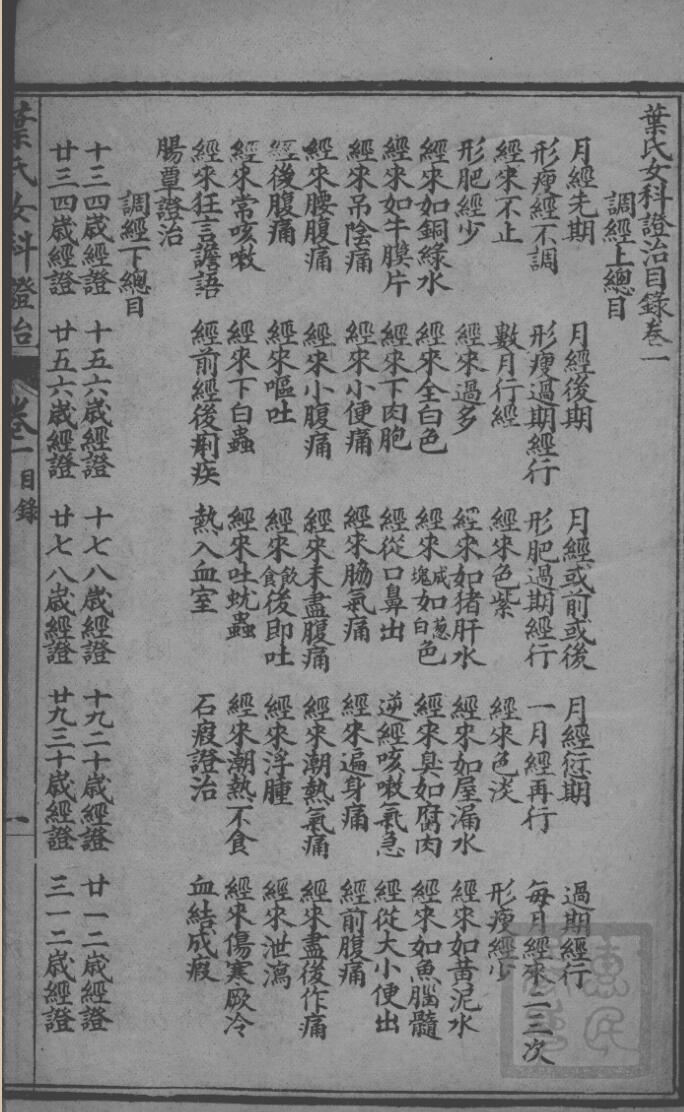 葉氏女科證治目錄卷一
調經上總目
月經先期 月經後期 月經或前或後 月經愆期 過期經行
形瘦經不調 形瘦過期經行 形肥過期經行 一月經再行 每月經來二三次
經來不止 數月行經 經來色紫 經來色淡 形瘦經少
形肥經少 經來過多 經來如猪肝水 經來如屋漏水 經來如黃泥水
經來如銅綠水 經來全白色 經來成塊如葱白色 經來臭如腐肉 經來如魚腦髓
經來如牛膜片 經來下肉胞 經從口鼻出 逆經咳嗽氣急 經從大小便出
經來吊陰痛 經來小便痛 經來脇氣痛 經來遍身痛 經前腹痛
經來腰腹痛 經來小腹痛 經來未盡腹痛 經來潮熱氣痛 經來盡後作痛
經後腹痛 經來嘔吐 經來飲食後即吐 經來浮腫 經來泄瀉
經來常咳嗽 經來下白蟲 經來吐蚘蟲 經來潮熱不食 經來傷寒厥冷
經來狂言譫語 經前經後痢疾 熱入血室 石瘕證治 血結成瘕
腸覃證治
調經下總目
十三四歲經證 十五六歲經證 十七八歲經證 十九二十歲經證 廿一二歲經證
廿三四歲經證 廿五六歲經證 廿七八歲經證 廿九三十歲經證 三一二歲經證
葉氏女科證治 卷一 目錄 一